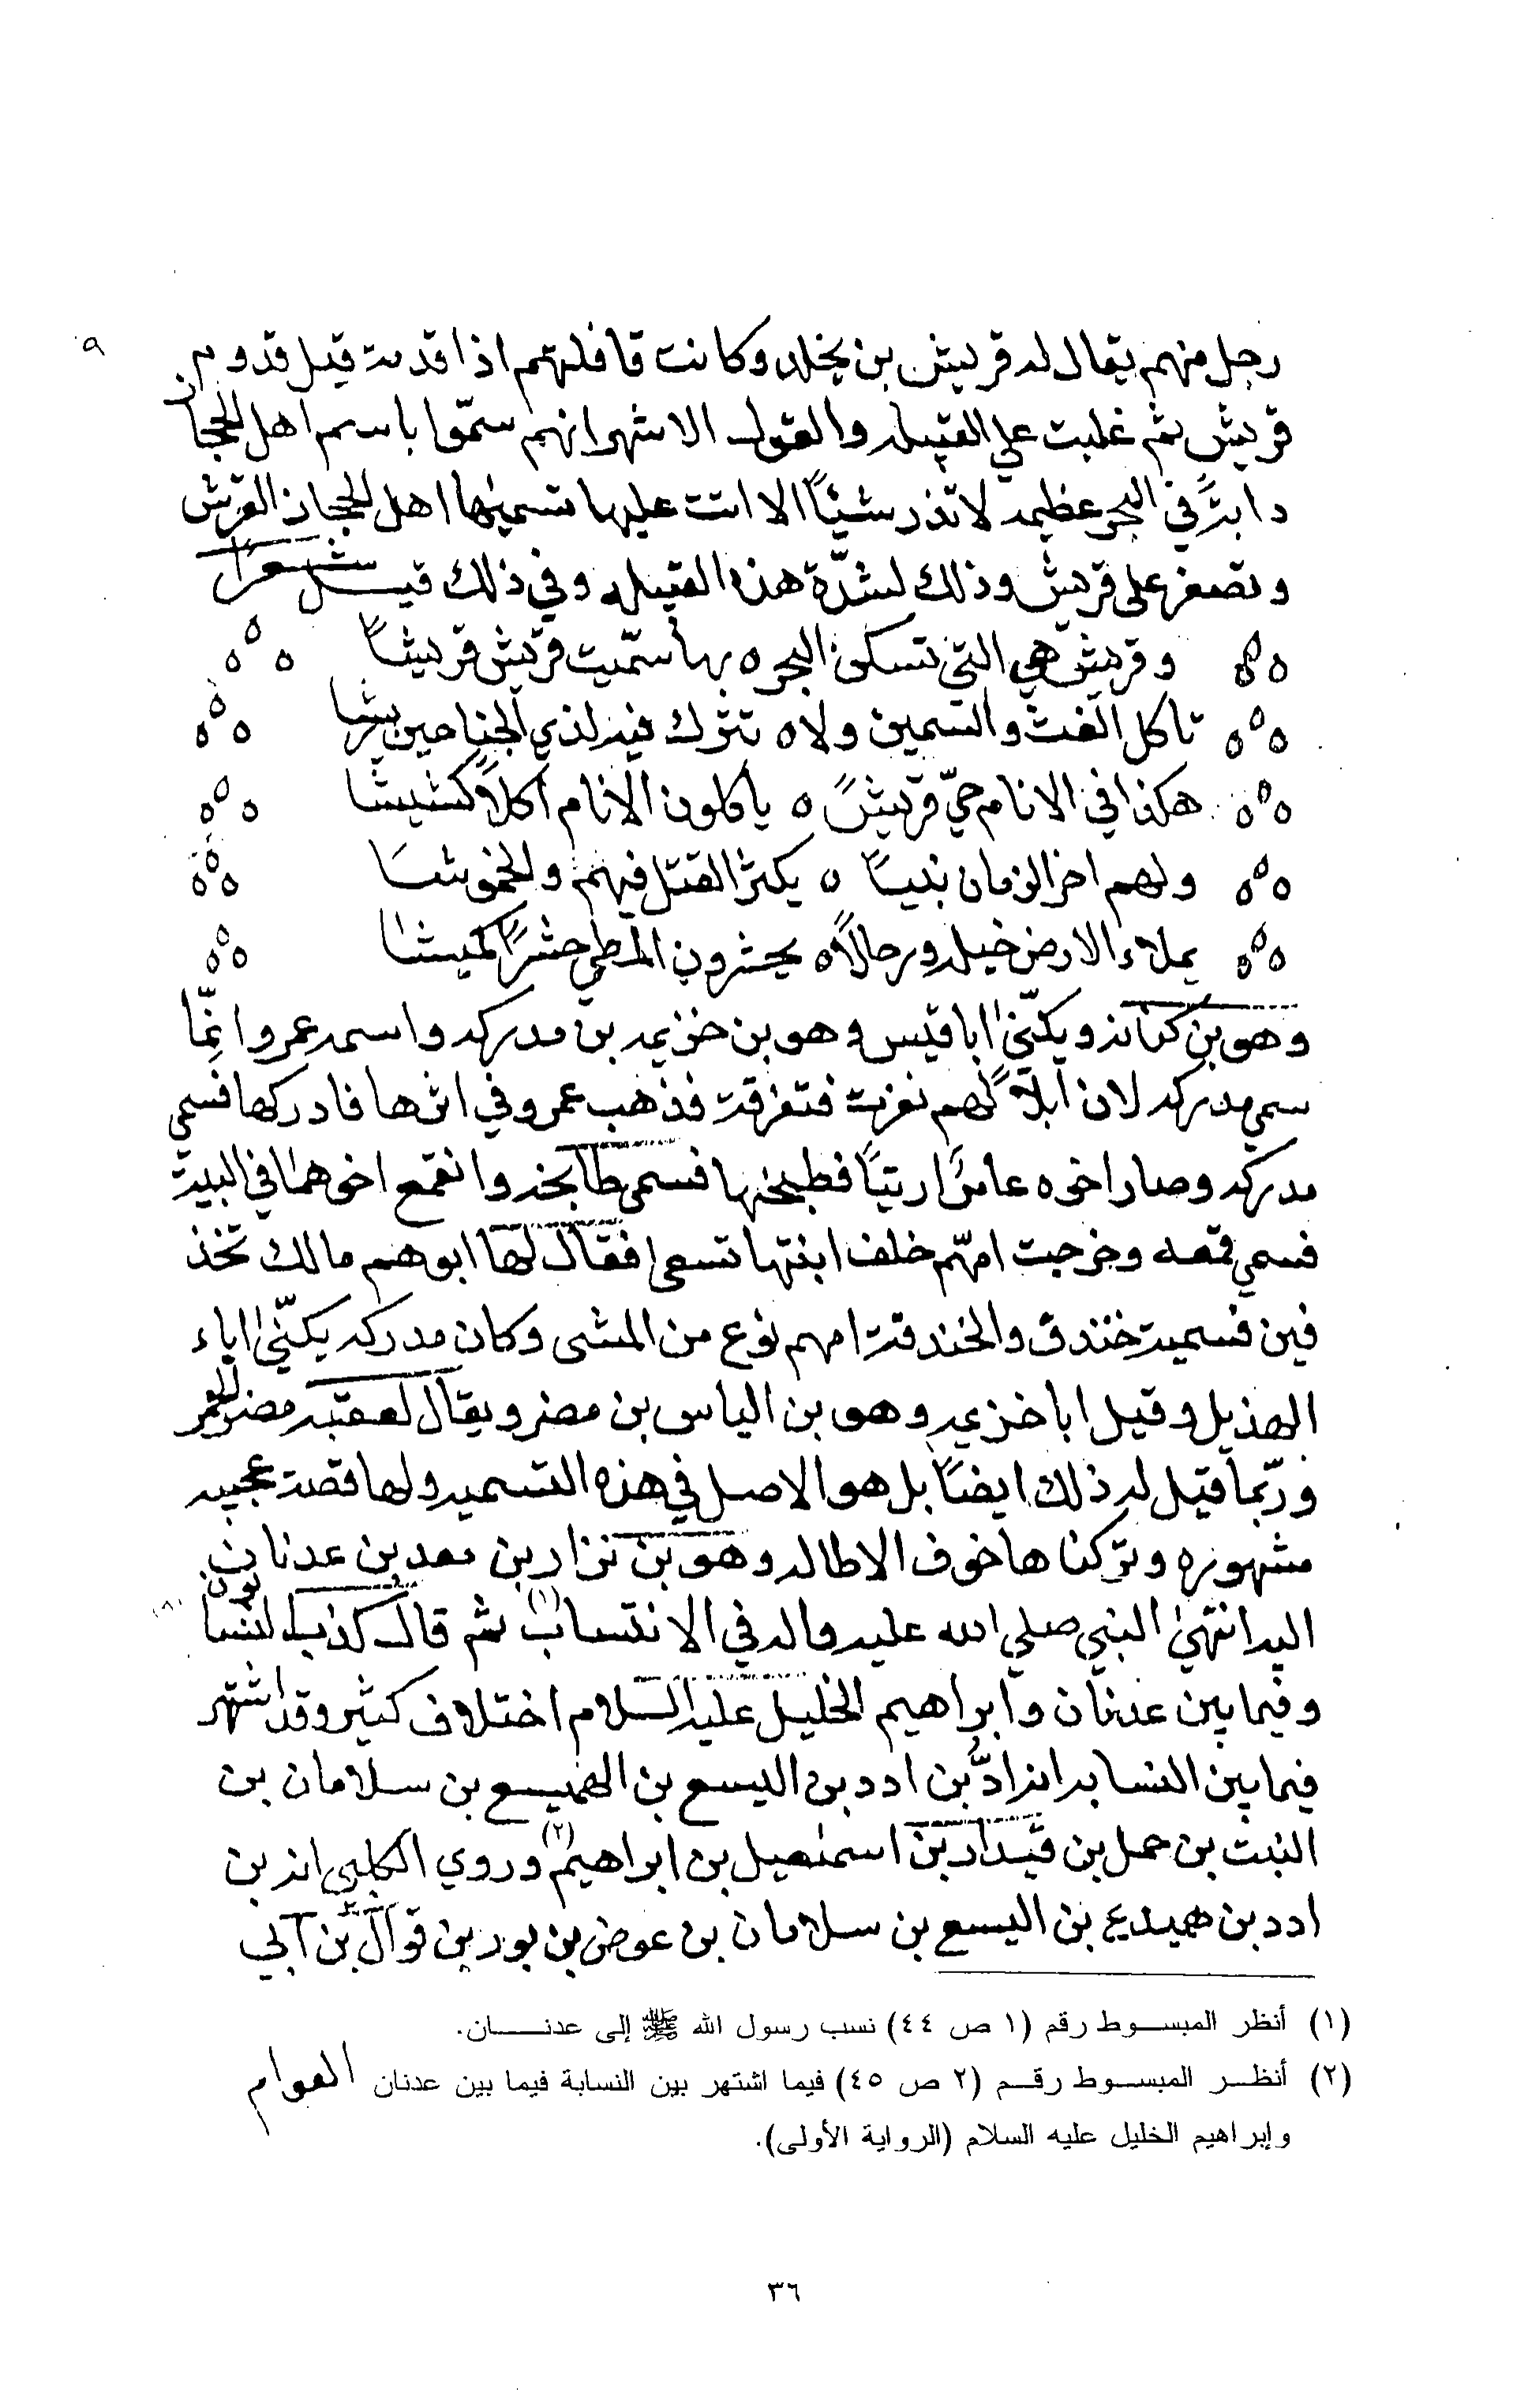 ٩
رجل منهم يقال له قريش بن يخلد وكانت قافلتهم اذا قدمت قيل قدوم
قريش ثم غلبت علي القبيله والقول الاشهر انهم سمّوا باسم اهل الحجاز
دابةً في البحر عظيمه لا تذر شيئاً الا اتت عليها تسميها اهل الحجاز القرش
وتصغر على قريش وذلك لشدّة هذه القبيله وفي ذلك قيل شعراً
وقريش هي التي تسكن البحر ه بها سمّيت قريش قريشاً
تاكل الغث والسمين ولا ه تترك فيه لذي الجناحين ريشا
هكذا في الانام حيّ قريشً ه ياكلون الانام اكلاً كشيشا
ولهم اخر الزمان نبياً ه يكثر القتل فيهم والخموشا
يملاء الارض خيله ورجالاً ه يحشرون المطي حشراً كميشا
وهو بن كنانه ويكنّى ابا قيس وهو بن خزيمه بن مدركه واسمه عمرو انمّا
سمي مدركه لان ابلاً لهم نفرت فتفرقت فذهب عمرو في اثرها فادركها فسمي
مدركه وصار اخوه عامرً ارنبًا فطبخها فسمى طابخه وانقمع اخوهما في البيت
فسمي قمعه وخرجت امهّم خلف ابنتها تسعى فقال لها ابوهم مالك تخذ
فين فسميت خندف والخندفة امهم نوع من المشى وكان مدركه يكنّى اباء
الهذيل وقيل ابا خزيمه وهو بن الياس بن مضر ويقال لعقبه مضر الحمر
وربّما قيل له ذلك ايضاً بل هو الاصل في هذه التسميه ولها قصة عجيبه
مشهوره وتركناها خوف الاطاله وهو بن نزار بن معد بن عدنان
اليه انتهى النبي صلي الله عليه واله في الانتساب (١) ثم قال كذب النسابون
وفيما بين عدنان وابراهيم الخليل عليه السلام اختلاف كثير وقد اشتهر
فيما بين النسابه انه ادُّ بن ادد بن اليسع بن الهميسع بن سلامان بن
النبت بن حمل بن قيدار بن اسمعيل بن ابراهيم (٢) وروي الكلبي انه بن
ادد بن هميدع بن اليسع بن سلامان بن عوض بن بور بن قوال بن آبي
(١) أنظر المبسوط رقم (١ ص ٤٤) نسب رسول الله ﷺ إلى عدنــان.
(٢) أنظر المبسوط رقم (٢ ص ٤٥) فيما اشتهر بين النسابة فيما بين عدنان العوام
وإبراهيم الخليل عليه السلام (الرواية الأولى).
٣٦